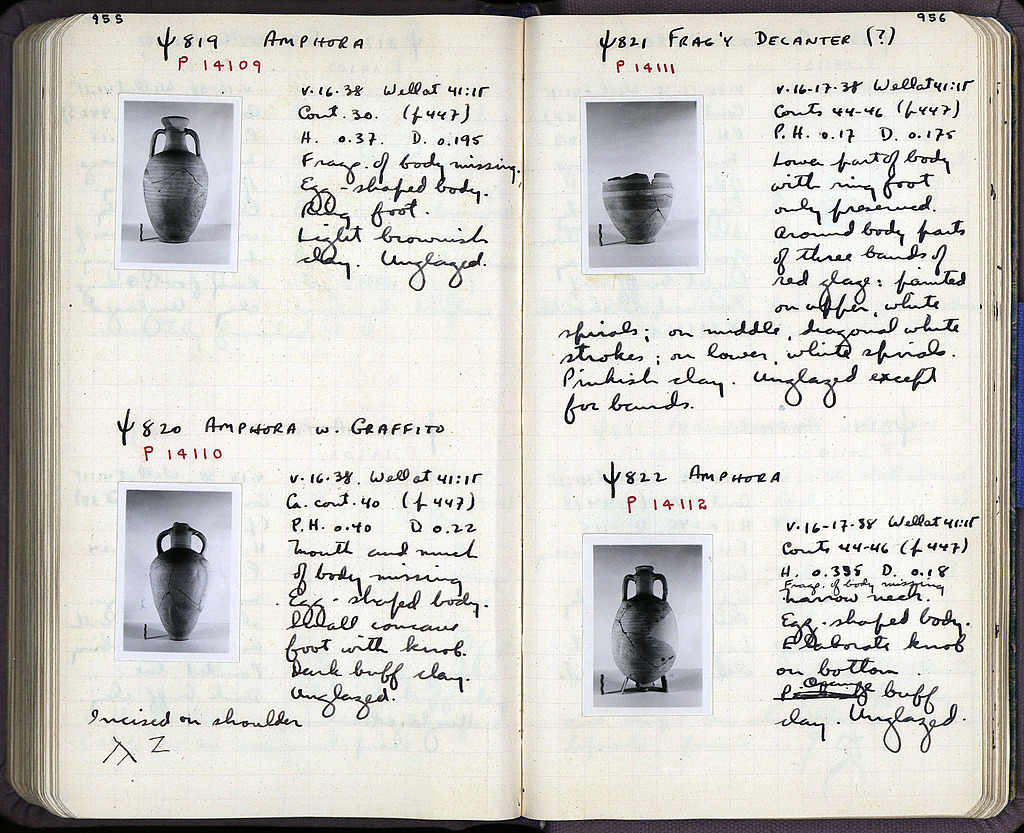 955
Ψ 819 AMPHORA
P 14109
V·16·38 Well at 41:15
Cont. 30. (f 447)
H. 0.37. D. 0.195
Frags. of body missing.
Egg-shaped body.
Ring foot.
Light brownish
clay. Unglazed.
Ψ 820 AMPHORA W. GRAFFITO
P 14110
V·16·38. Well at 41:15
Ca. cont. 40 (f 447)
P.H. 0.40 D 0.22
Mouth and much
of body missing
Egg-shaped body.
Small concave
foot with knob.
Dark buff clay.
Unglazed.
Incised on shoulder
Z
956
Ψ 821 FRAG'Y DECANTER (?)
P 14111
V·16-17·38 Well at 41:15
Conts 44-46 (f 447)
P.H. 0.17 D. 0.175
Lower part of body
with ring foot
only preserved.
Around body parts
of three bands of
red glaze: painted
on upper, white
spirals; on middle, diagonal white
strokes; on lower, white spirals.
Pinkish clay. Unglazed except
for bands.
Ψ 822 AMPHORA
P 14112
V·16-17·38 Well at 41:15
Conts 44-46 (f 447)
H. 0.335 D. 0.18
Frags. of body missing
Narrow neck.
Egg-shaped body.
Elaborate knob
on bottom.
Orange buff
clay. Unglazed.